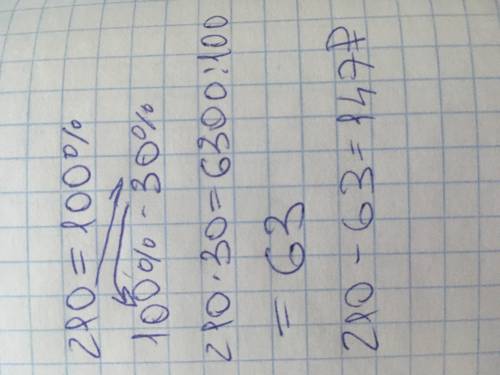 210 = 100%
100% - 30%
210 · 30 = 6300 : 100
= 63
210 - 63 = 147₽